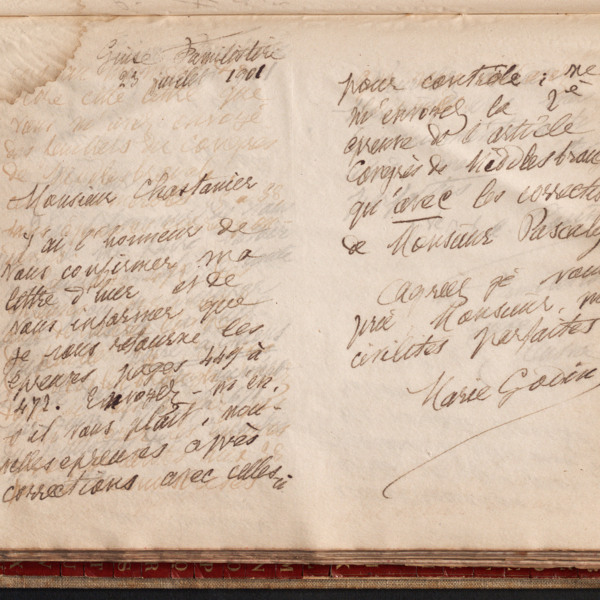 Guise Familistère
23 juillet 1901
Monsieur Chastanier
J'ai l'honneur de
vous confirmer ma
lettre d'hier et de
vous informer que
je vous retourne les
épreuves pages 449 à
472. Envoyez-m'en,
s'il vous plaît, nou-
velles épreuves après
corrections avec celles-ci
pour contrôle ; ne
m'envoyez la 2e
épreuve de l'article
Congrès de
qu'avec les correctio
de Monsieur Pascaly
Agréez je vous
prie Monsieur, m
civilités parfaites
Marie Godin